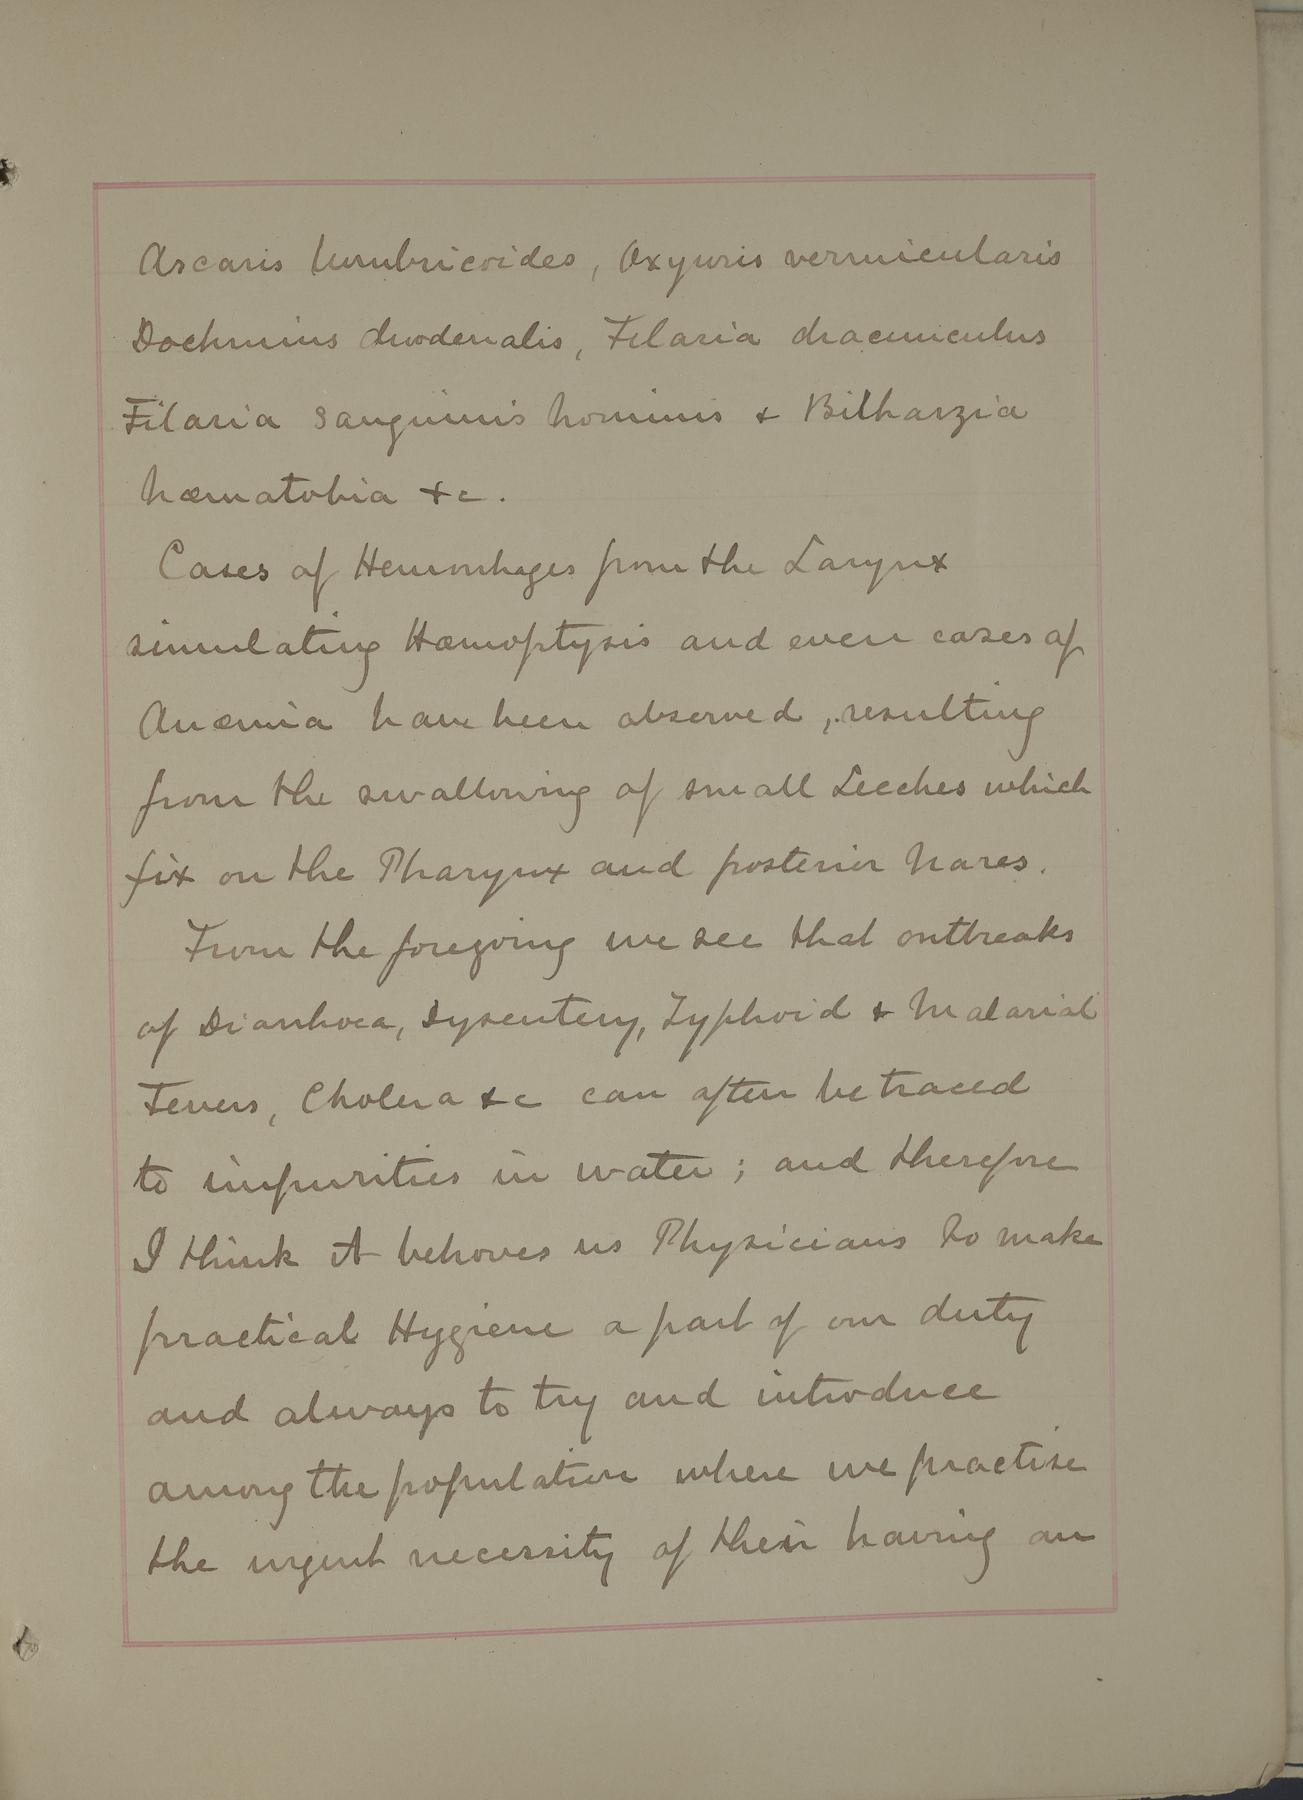 Ascaris lumbricoides, Oxyuris vermicularis
Dochmius duodenalis, Filaria dracunculus
Filaria sanguinis hominis & Bilharzia
hæmatobia &c.
Cases of Hemorrhages from the Larynx
simulating Hæmoptysis and even cases of
Anæmia have been observed, resulting
from the swallowing of small Leeches which
fix on the Pharynx and posterior nares.
From the foregoing we see that outbreaks
of Diarrhoea, Dysentery, Typhoid & Malarial
Fevers, Cholera &c can often be traced
to impurities in water; and therefore
I think it behoves us Physicians to make
practical Hygiene a part of our duty
and always to try and introduce
among the population where we practise
the urgent necessity of their having an